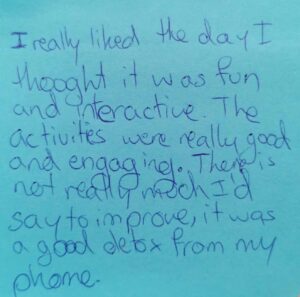 I really liked the day I
thought it was fun
and interactive. The
activites were really good
and engaging. There is
not really much I'd
say to improve, it was
a good detox from my
phone.